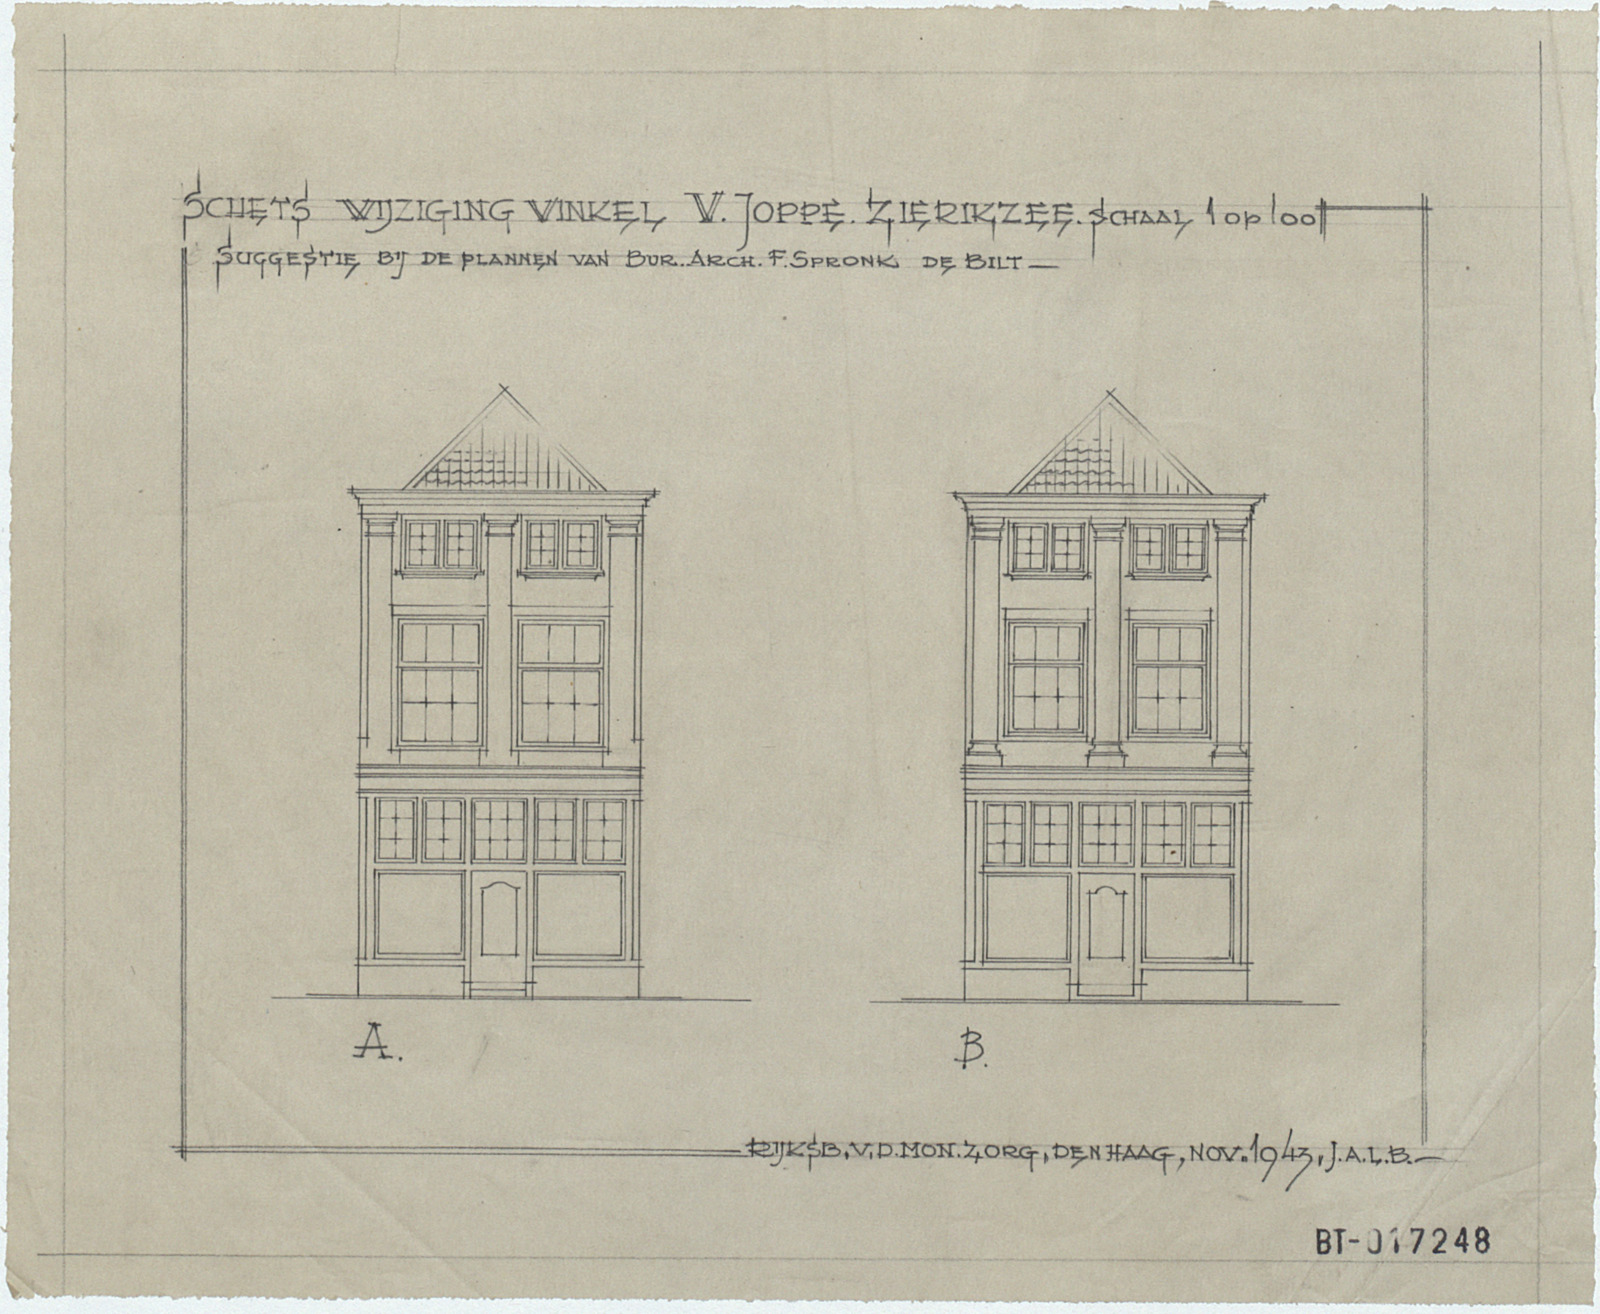 SCHETS WIJZIGING WINKEL V. JOPPE. ZIERIKZEE. SCHAAL 1 op 100
SUGGESTIE BIJ DE PLANNEN VAN BUR. ARCH. F. SPRONK DE BILT —
A.
B.
RIJKSB. V. D. MON. ZORG, DEN HAAG, NOV. 1943, J.A.L.B. —
BT-017248